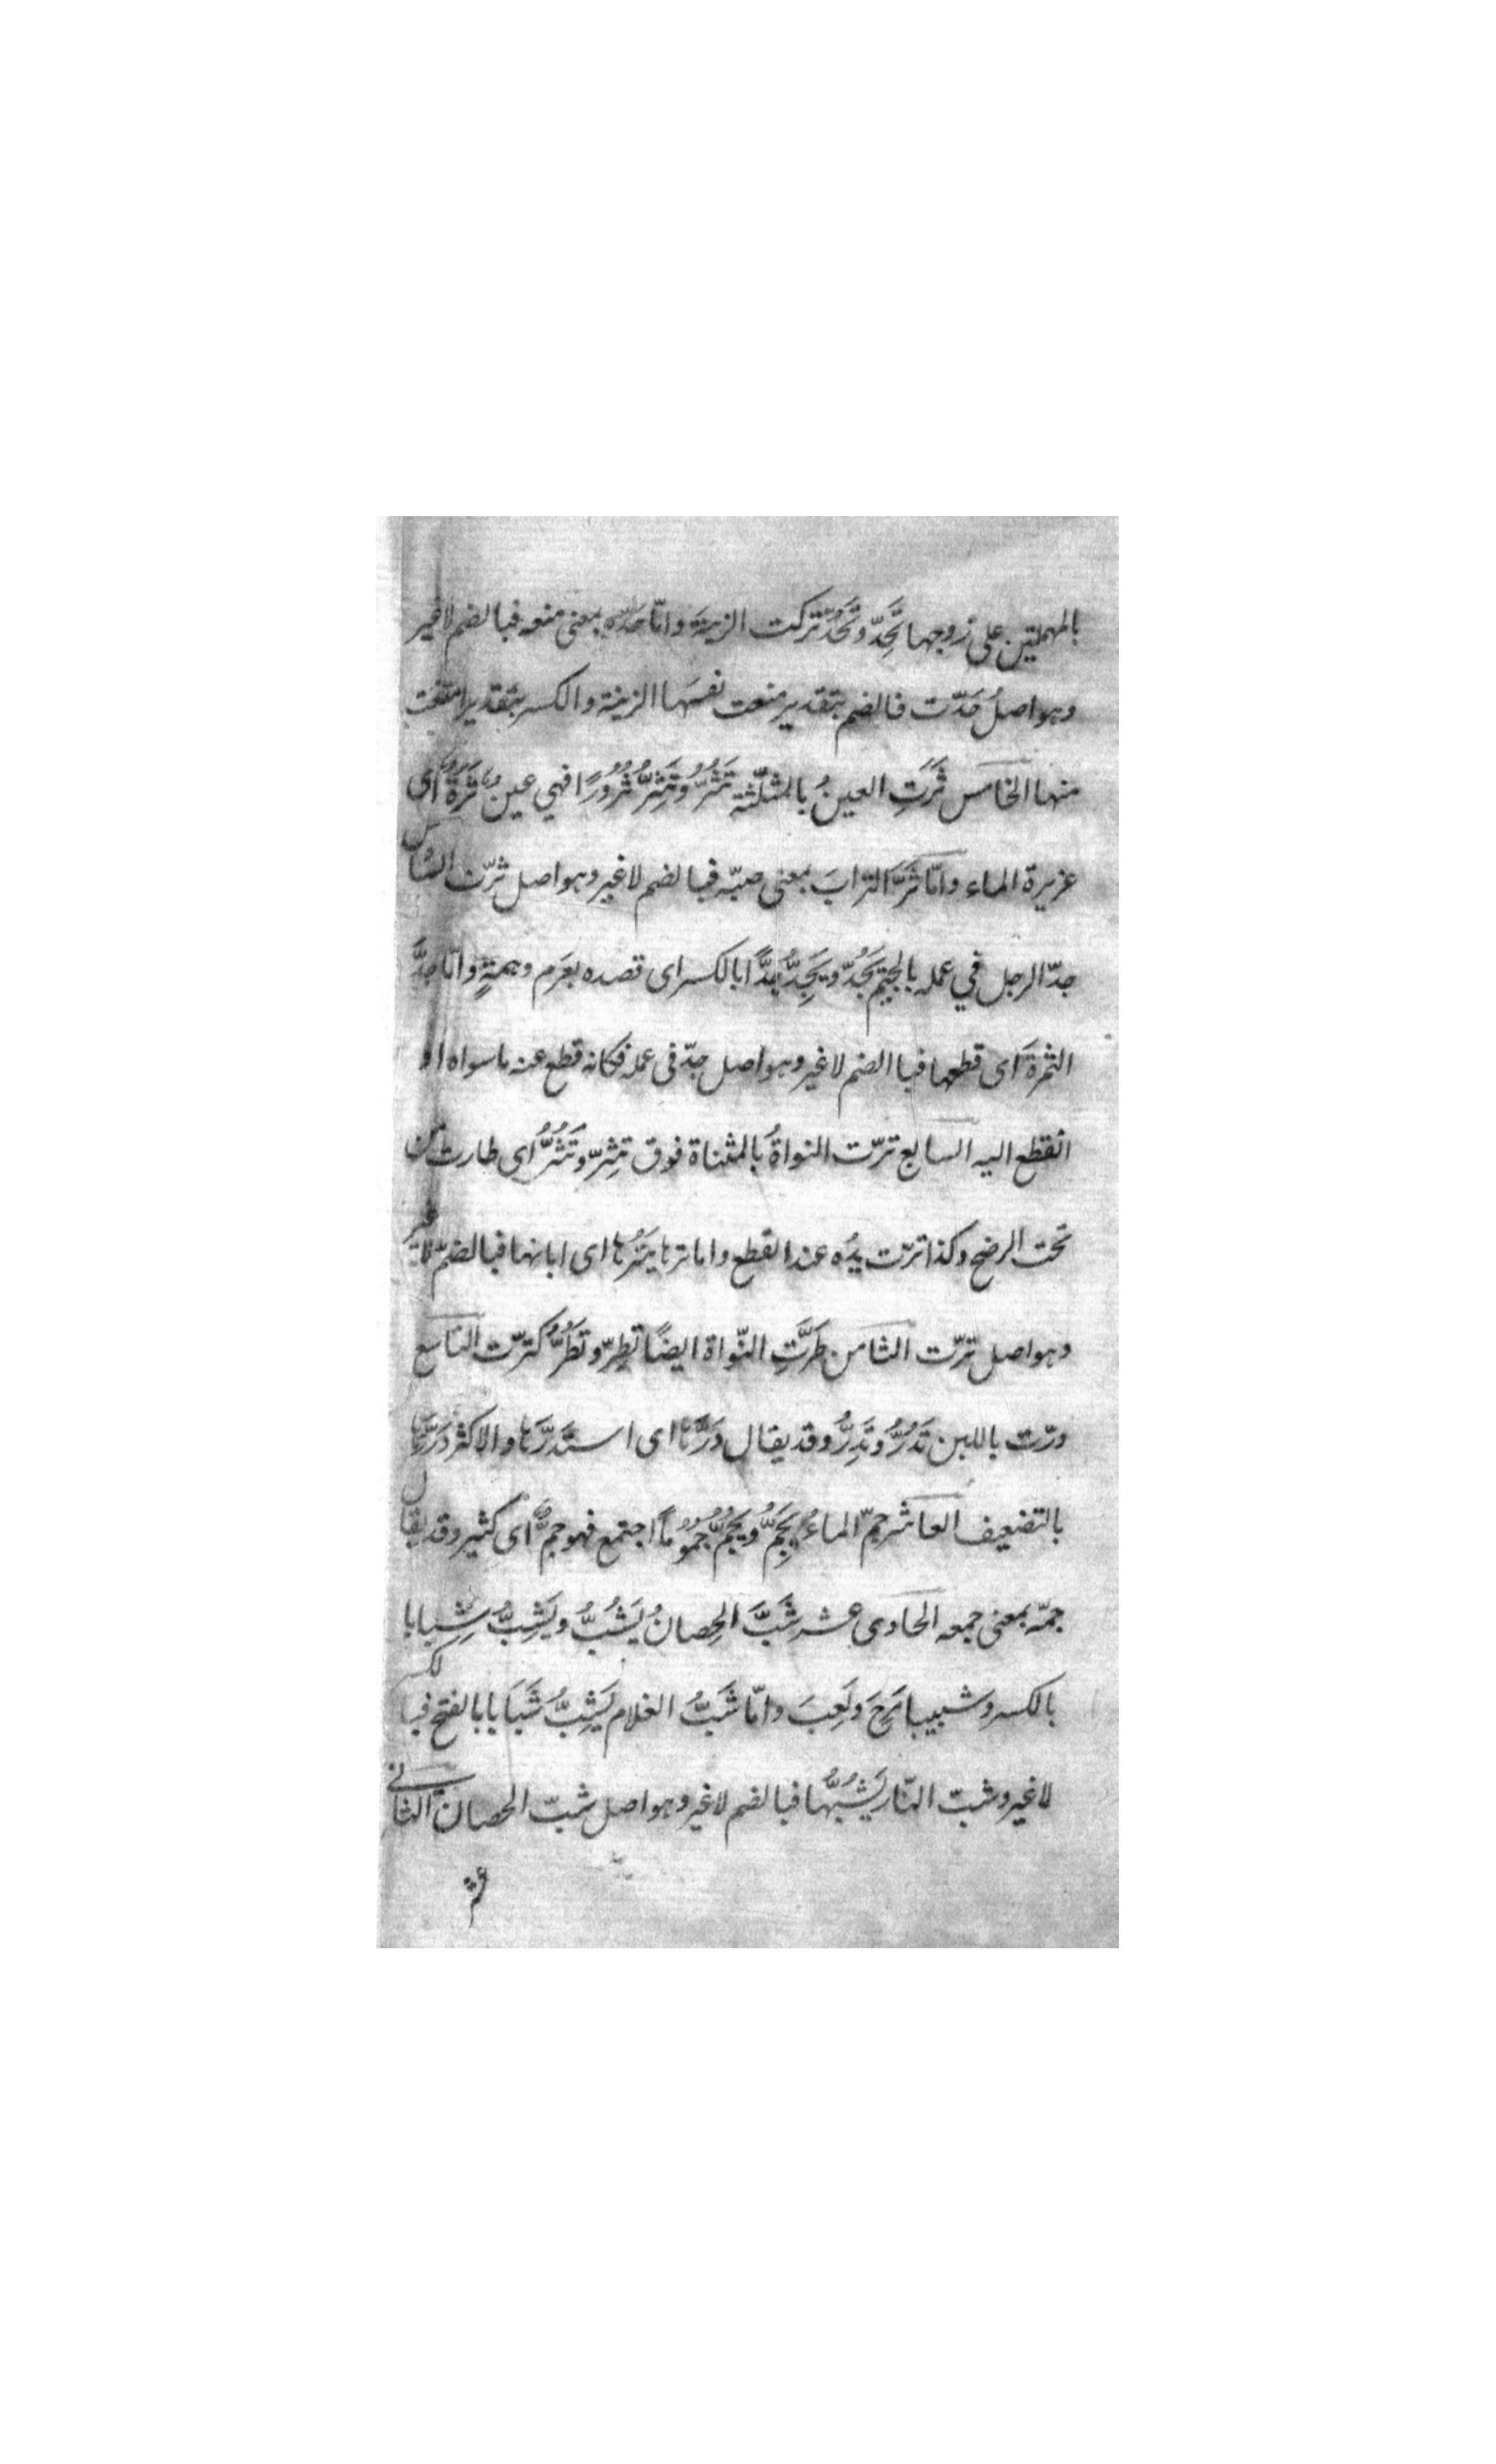 بالمهملتين على زوجها تَحِدّ وتَحُدّ تركت الزينة وامّا حَدّه بمعنى منعه فبالضم لاغير
وهو اصلُ حَدّت فالضم بتقدير منعت نفسَها الزينة والكسر بتقدير امتنعت
منها الخامس ثَرَّتِ العينُ بالمثلّثة تَثُرُّ وتَثِرُّ ثُرُورًا فهي عينٌ ثَرَّةٌ اى
غزيرة الماء وامّا ثَرَّ الترابَ بمعنى صبّه فبالضم لاغير وهو اصل ثرّت السادس
جدّ الرجل في عمله بالجيم يَجُدُّ ويَجِدُّ جِدًّا بالكسر اى قصده بعزم وهمةٍ وامّا جدَّ
الثمرةَ اى قطعها فبالضم لاغير وهو اصل جدّ فى عمله فكانه قطع عنه ماسواه او
انقطع اليه السابع ترّت النواةُ بالمثناة فوق تتِرّ وتَتُرُّ اى طارت من
تحت الرضح وكذا ترّت يدُه عند القطع واما ترها يَتُرّها اى ابانها فبالضمّ لاغير
وهو اصل ترّت الثامن طَرَّتِ النّواة ايضًا تطِرّ وتطُرُّ كترّت التاسع
درّت باللبن تَدُرُّ وتَدِرُّ وقد يقال دَرَّها اى استَدَرَّها والاكثر دَرَّها
بالتضعيف العاشر جمّ الماءُ يَجِمُّ ويَجُمُّ جُمُومًا اجتمع فهو جمٌّ اى كثير وقد يقال
جمّه بمعنى جمعه الحادى عشر شَبَّ الحِصانُ يَشُبُّ ويَشِبُّ شِبابا
بالكسر وشبيبا مَرِحَ ولَعِبَ وامّا شَبَّ الغلام يَشِبُّ شَبَابا بالفتح فبالكسر
لاغير وشبّ النّار يَشُبُّها فبالضم لاغير وهو اصل شبّ الحصان الثانى
عشر